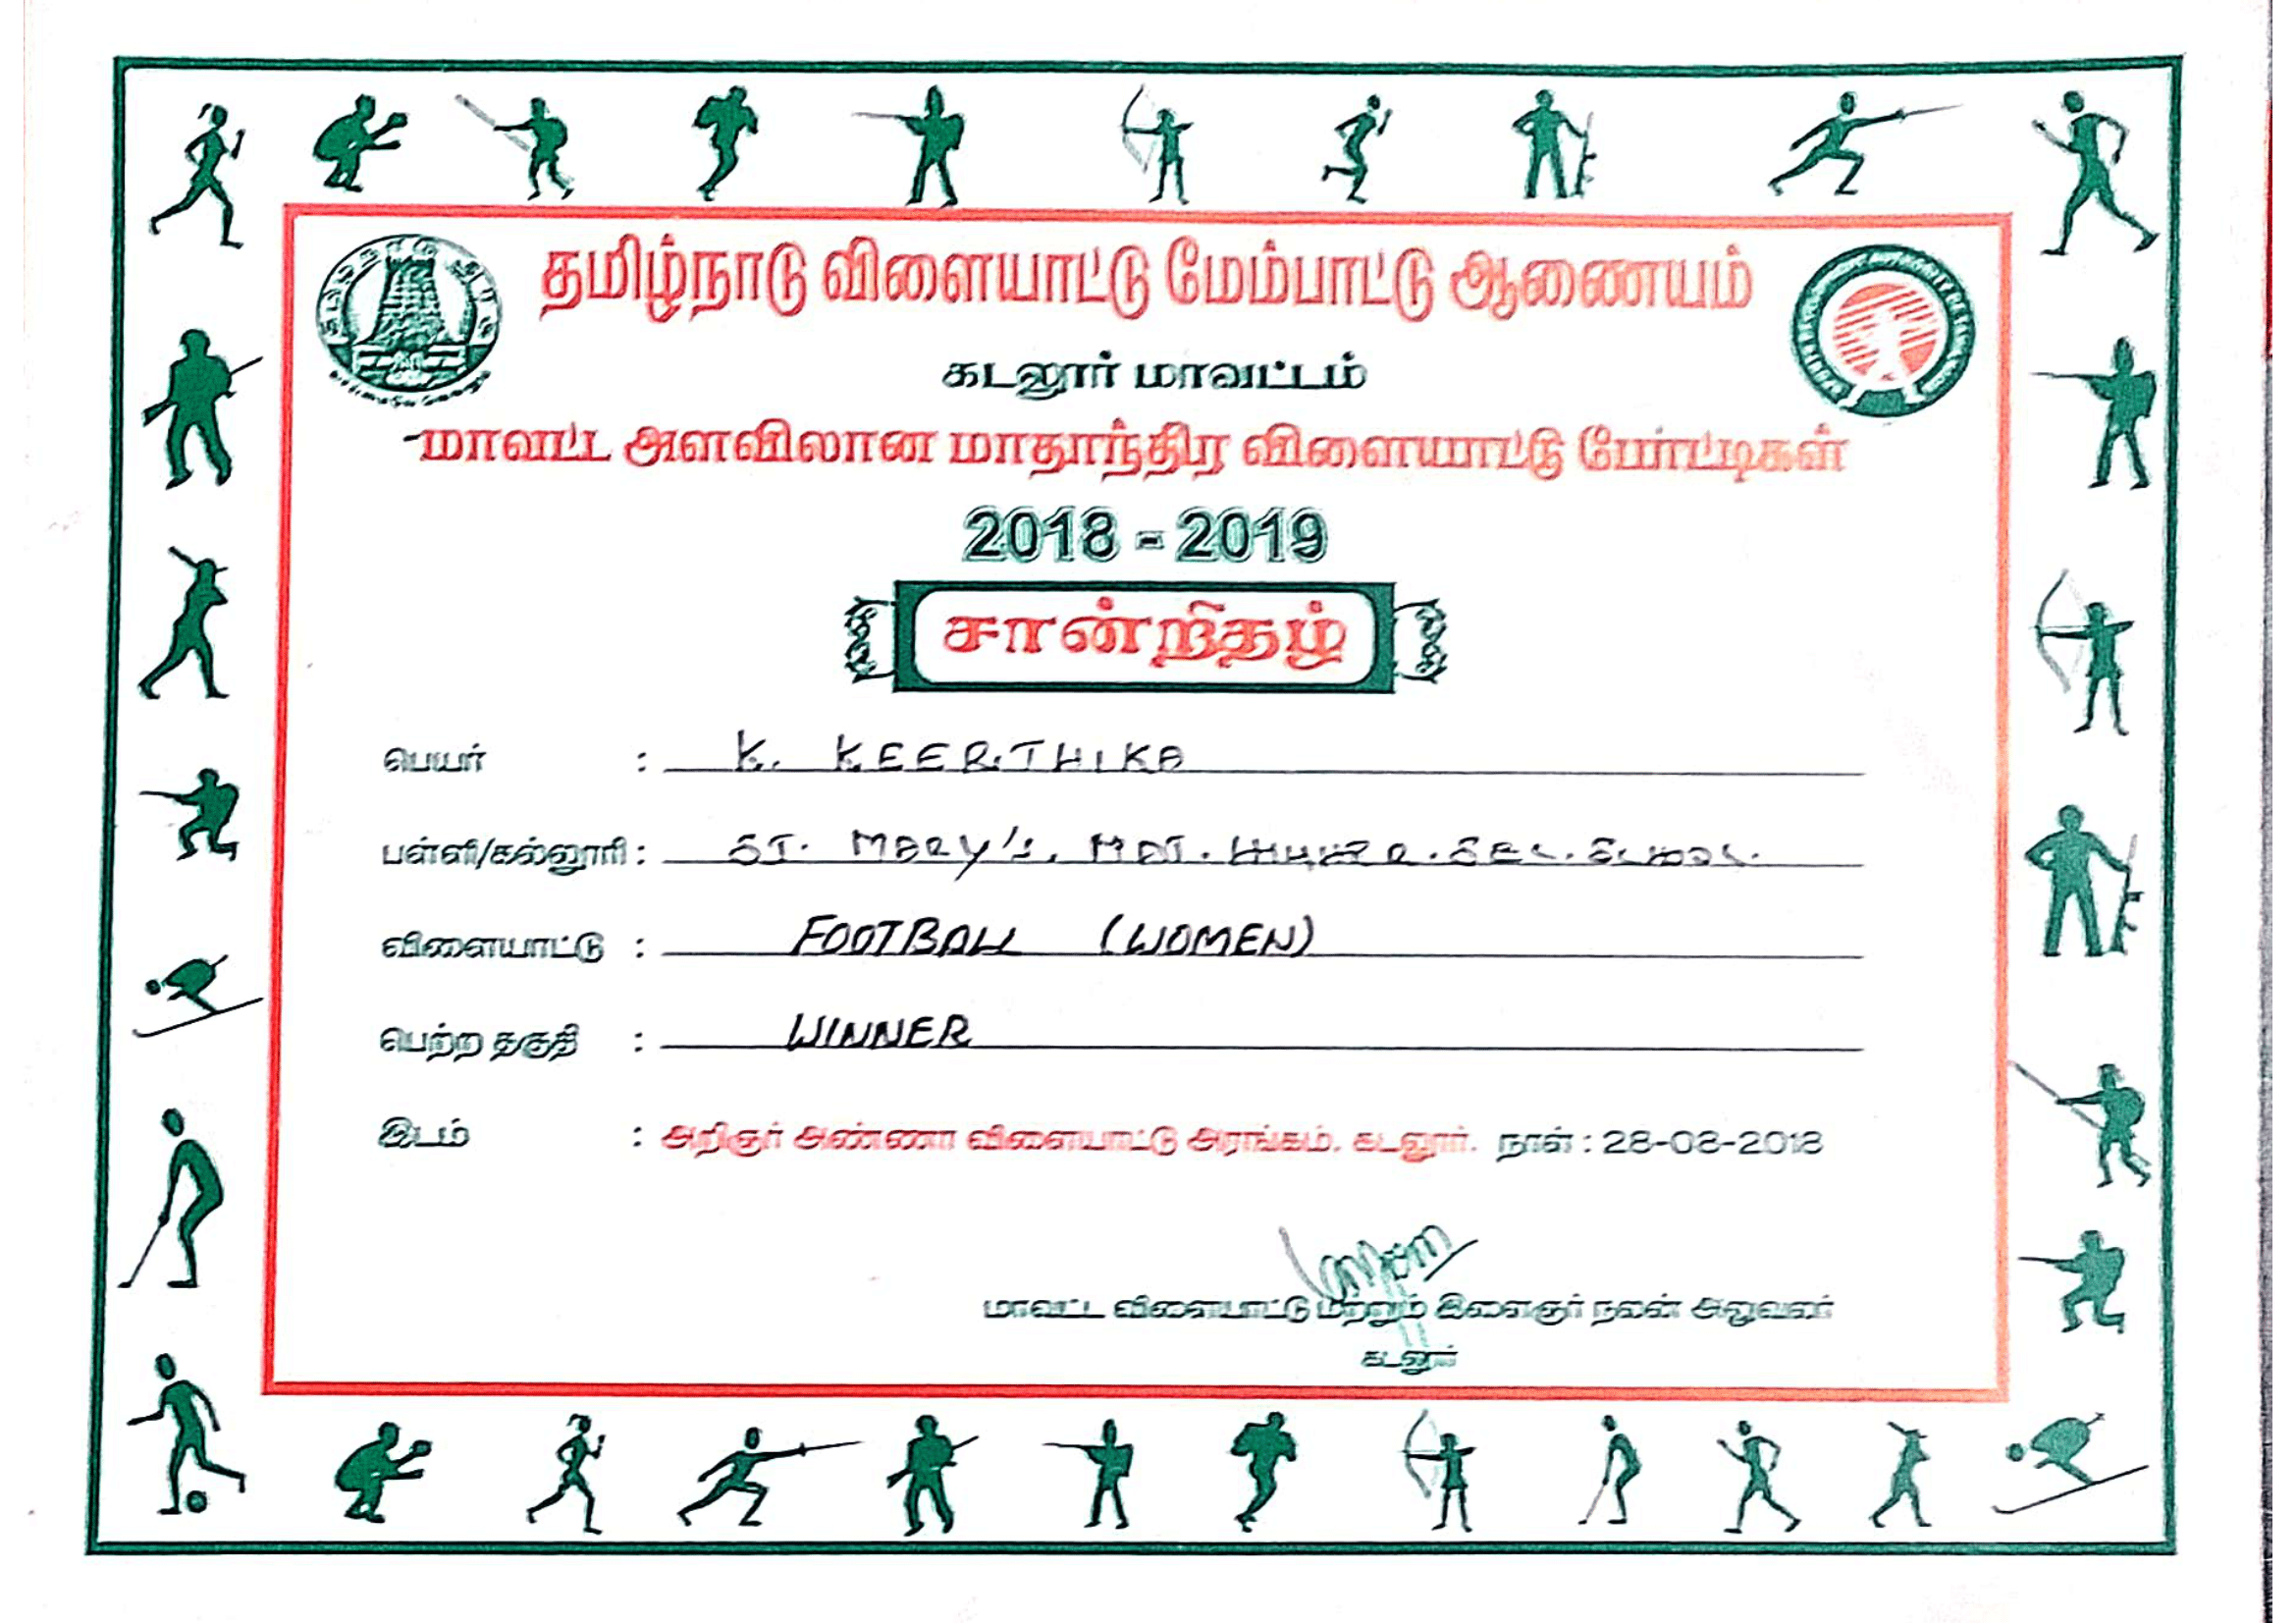 தமிழ்நாடு விளையாட்டு மேம்பாட்டு ஆணையம்
கடலூர் மாவட்டம்
மாவட்ட அளவிலான மாதாந்திர விளையாட்டு போட்டிகள்
2018 - 2019
சான்றிதழ்
பெயர் : K. KEERTHIKA
பள்ளி/கல்லூரி : ST. MARY'S. MAT. SEC. SCHOOL.
விளையாட்டு : FOOTBALL (WOMEN)
பெற்ற தகுதி : WINNER
இடம் : அறிஞர் அண்ணா விளையாட்டு அரங்கம். கடலூர். நாள் : 28-08-2018
மாவட்ட விளையாட்டு மற்றும் இளைஞர் நலன் அலுவலர்
கடலூர்